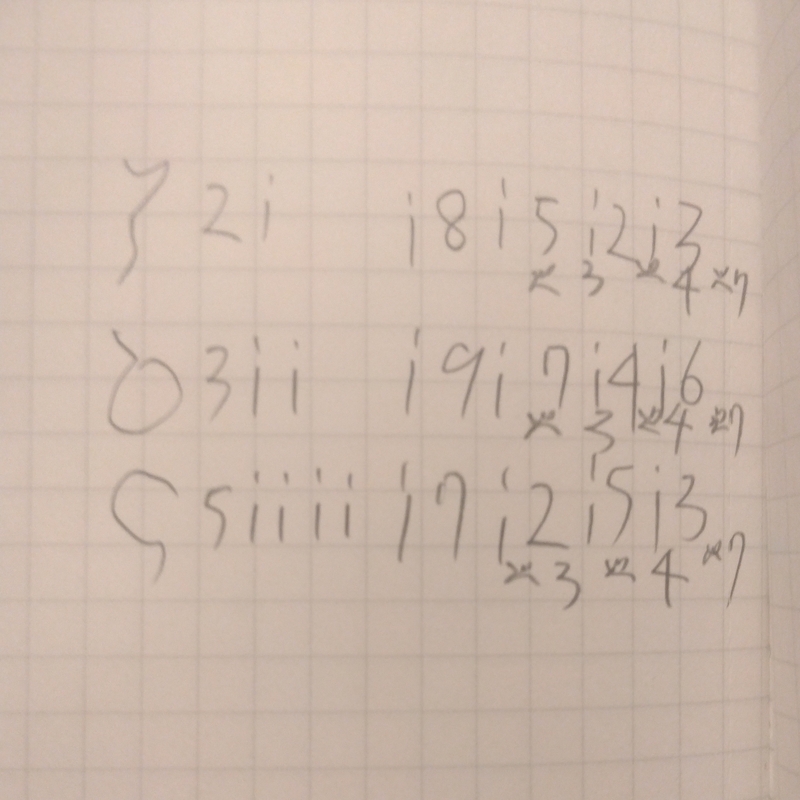 ζ 2i i8i5i2i3
※3※4※7
δ 3ii i9i7i4i6
※3※4※7
ς 5iiii i7i2i5i3
※3※4※7